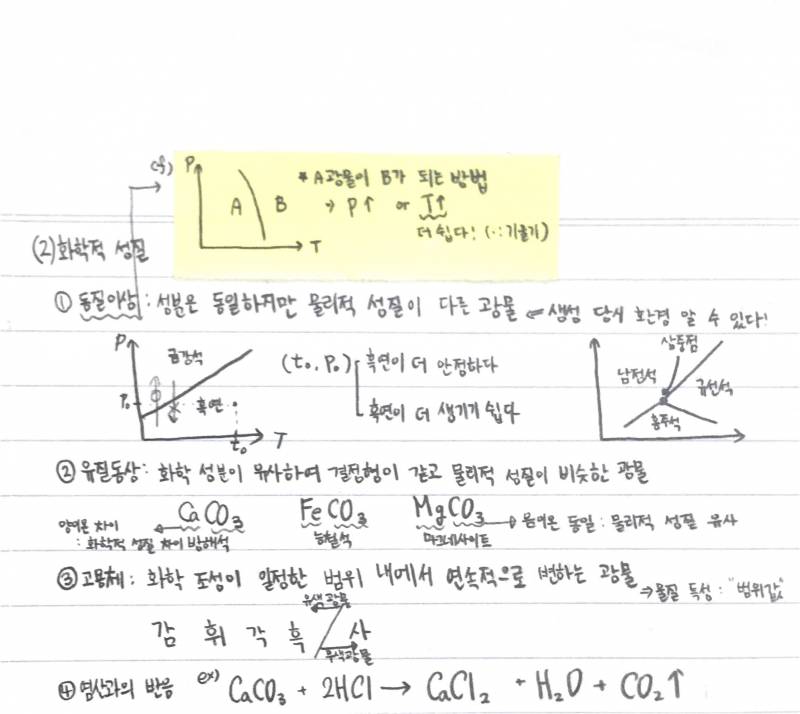 cf) P
A B
T
* A광물이 B가 되는 방법
→ P↑ or T↑
더 쉽다! (∵기울기)
(2) 화학적 성질
① 동질이상 : 성분은 동일하지만 물리적 성질이 다른 광물 ⇐ 생성 당시 환경 알 수 있다!
P
금강석
P₀ 흑연
t₀ T
(t₀, P₀) 흑연이 더 안정하다
흑연이 더 생기기 쉽다
삼중점
남정석 규선석
홍주석
② 유질동상 : 화학 성분이 유사하여 결정형이 같고 물리적 성질이 비슷한 광물
양이온 차이 ← CaCO₃ FeCO₃ MgCO₃ → 음이온 동일 : 물리적 성질 유사
: 화학적 성질 차이 방해석 능철석 마그네사이트
③ 고용체 : 화학 조성이 일정한 범위 내에서 연속적으로 변하는 광물
→ 물질 특성 : "범위값"
유색 광물
감 휘 각 흑 사
무색광물
④ 염산과의 반응 ex) CaCO₃ + 2HCl → CaCl₂ + H₂O + CO₂↑